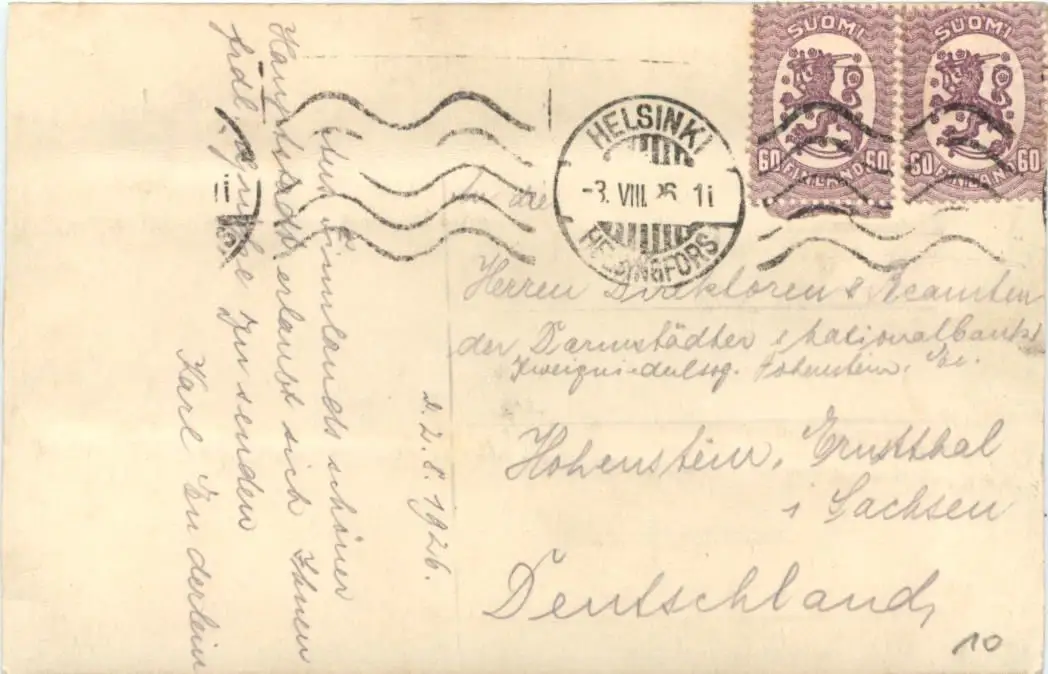 SUOMI
60 60
FINLAND
SUOMI
60 60
FINLAND
HELSINKI
-3. VIII. 26 1i
HELSINGFORS
D. 2. 8. 1926.
Aus Finnlands schöner
Hauptstadt erlaubt sich Ihnen
frdl. Grüße zu senden
Karl Enderlein
An die
Herren Direktoren & Beamten
der Darmstädter & Nationalbank
Zweigniederlsg. Hohenstein, Er.
Hohenstein, Ernstthal
i Sachsen
Deutschland,
10